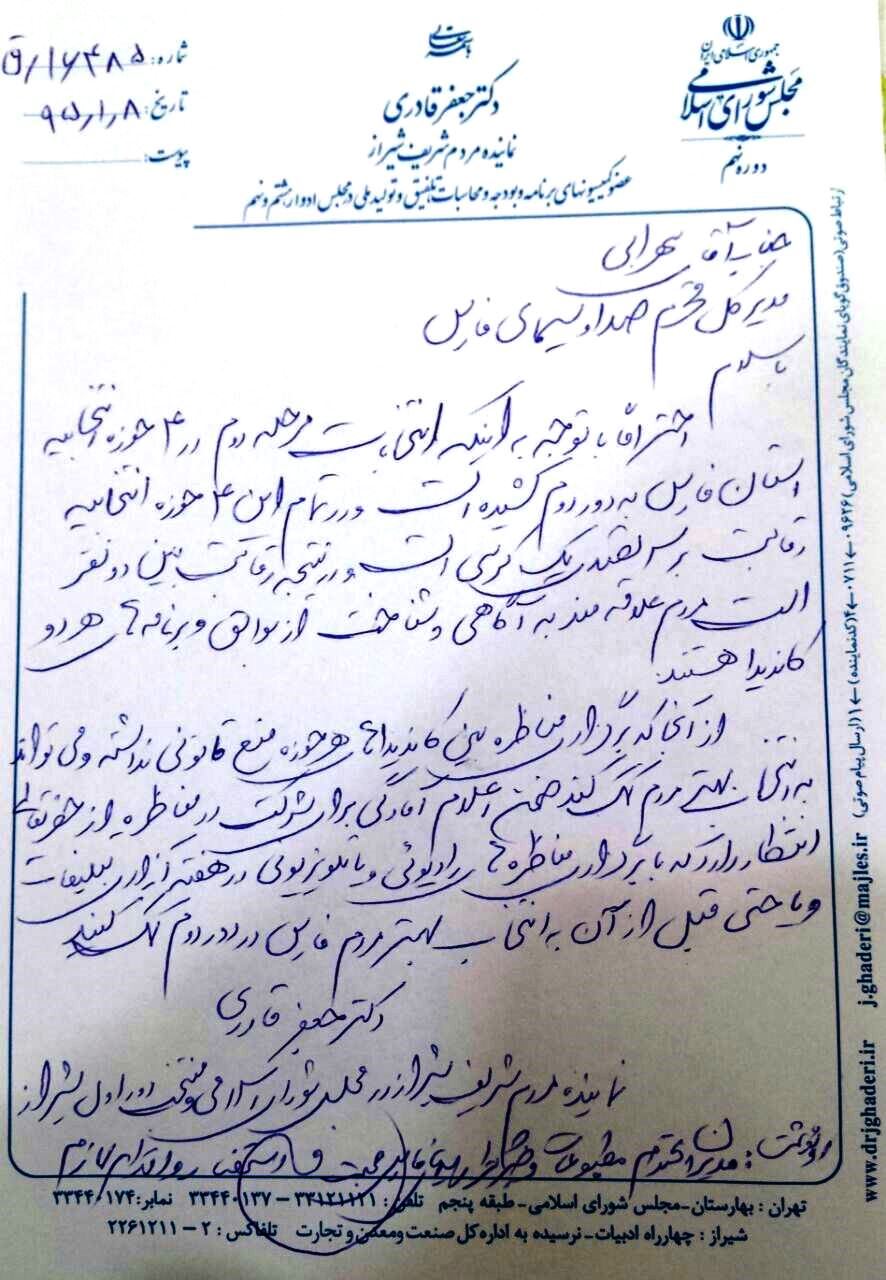 جمهوری اسلامی ایران
مجلس شورای اسلامی
دوره نهم
بسمه تعالی
دکتر جعفر قادری
نماینده مردم شریف شیراز
عضو کمیسیونهای برنامه و بودجه و محاسبات، تلفیق و تولید ملی در مجلس ادوار هشتم و نهم
شماره: ۱۶۴۸۵/ق
تاریخ: ۹۵/۱/۸
پیوست:
جناب آقای سهرابی
مدیر کل محترم صدا و سیمای فارس
با سلام
احتراماً با توجه به اینکه انتخابات مرحله دوم در ۴ حوزه انتخابیه
استان فارس به دور دوم کشیده است و در تمام این ۴ حوزه انتخابیه
رقابت بر سر تصدی یک کرسی است و در نتیجه رقابت بین دو نفر
است مردم علاقه مند به آگاهی و شناخت از سوابق و برنامه های هر دو
کاندیدا هستند.
از آنجا که برگزاری مناظره بین کاندیداهای هر حوزه منع قانونی نداشته و می تواند
به انتخاب بهتر مردم کمک کند ضمن اعلام آمادگی برای شرکت در مناظره از حضرتعالی
انتظار دارد که با برگزاری مناظره های رادیوئی و یا تلویزیونی در هفته آزادی تبلیغات
و یا حتی قبل از آن به انتخاب بهتر مردم فارس در دور دوم کمک کنید
دکتر جعفر قادری
نماینده مردم شریف شیراز در مجلس شورای اسلامی و منتخب دور اول شیراز
رونوشت: مدیران محترم مطبوعات و جهت اقدام لازم
تهران : بهارستان-مجلس شورای اسلامی - طبقه پنجم تلفن : ۳۳۱۲۱۱۲۱ – ۳۳۴۴۰۱۳۷ نمابر: ۳۳۴۴۰۱۷۴
شیراز : چهارراه ادبیات- نرسیده به اداره کل صنعت ومعدن و تجارت تلفاکس : ۲ – ۲۲۶۱۲۱۱
ارتباط صوتی (صندوق گویای نمایندگان مجلس شورای اسلامی) ۰۹۶۲۶ ← ۰۷۱۱ ← ۴(کدنماینده) ← ۱(ارسال پیام صوتی)
www.drjghaderi.ir j.ghaderi@majles.ir